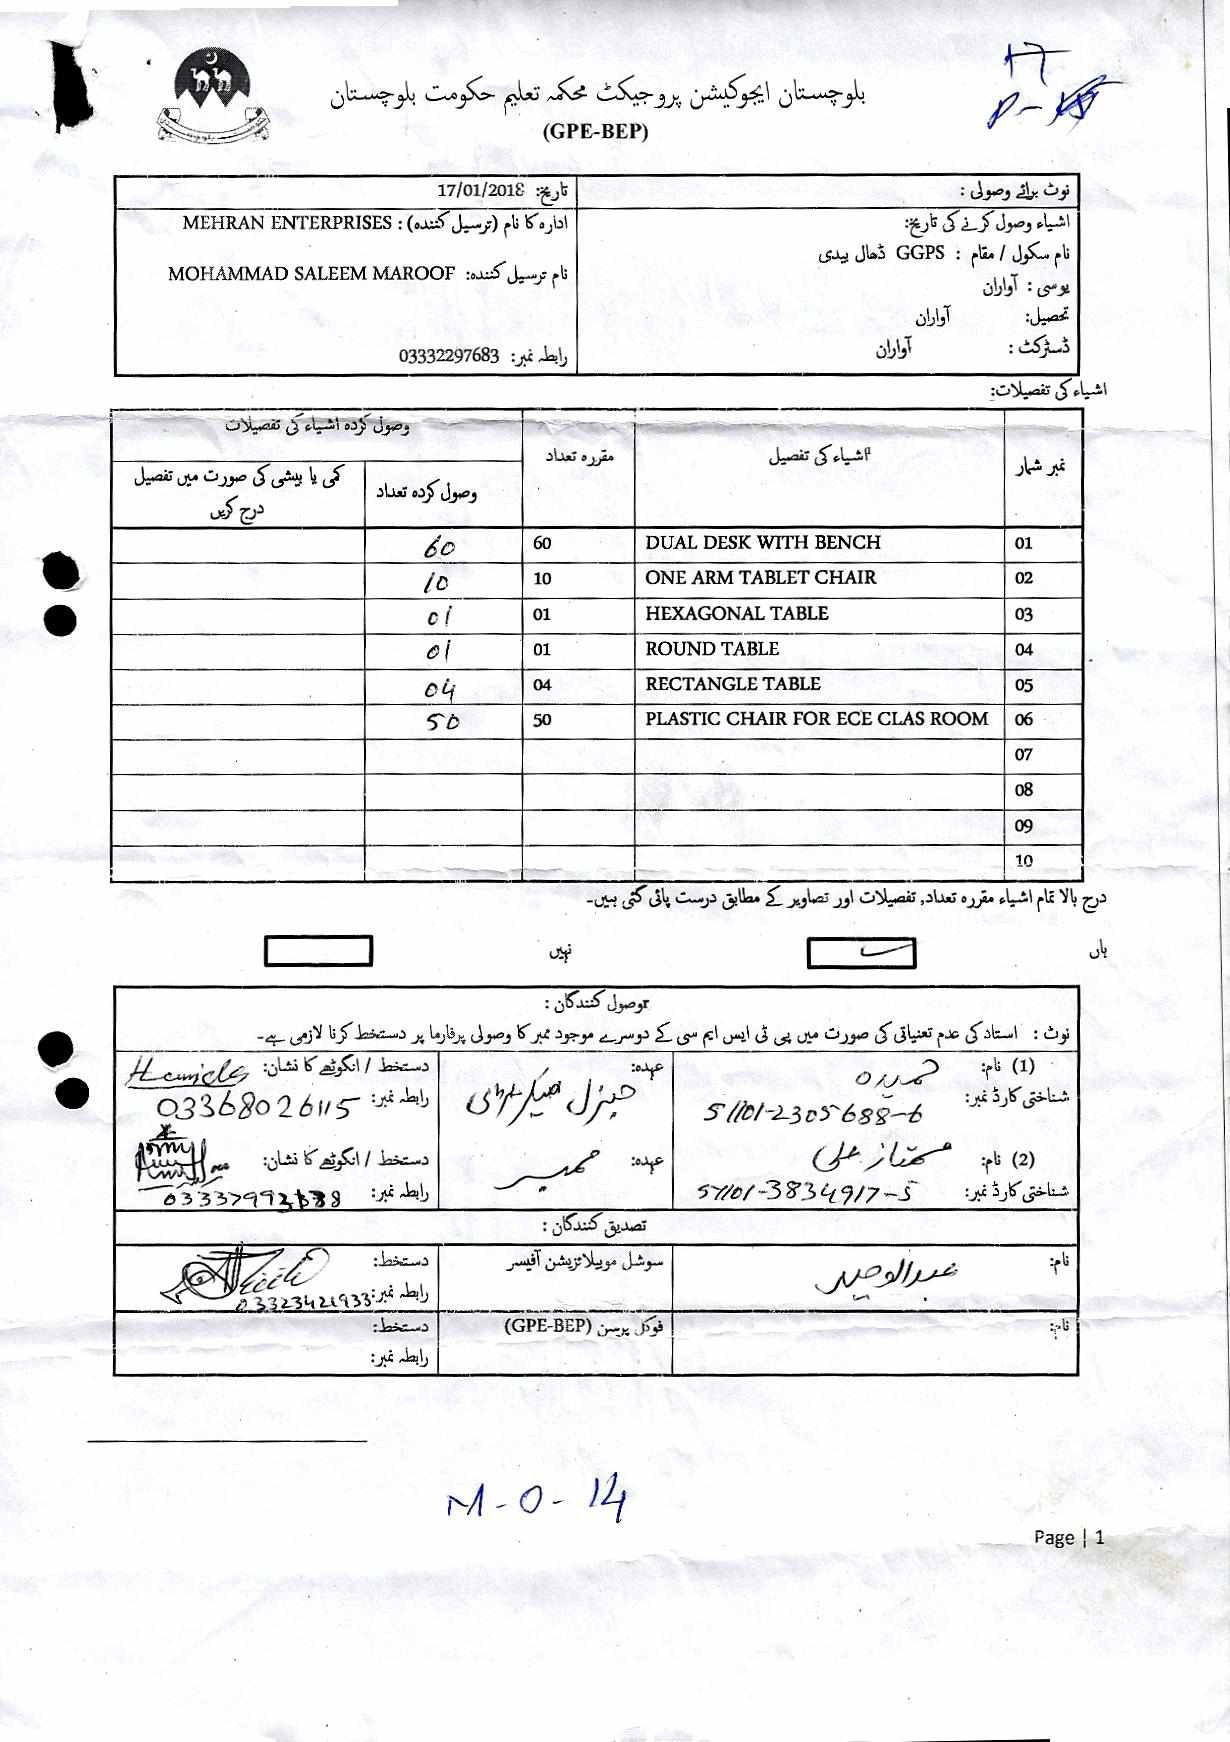 بلوچستان ایجوکیشن پروجیکٹ محکمہ تعلیم حکومت بلوچستان
(GPE-BEP)
17
P-
نوٹ برائے وصولی :
تاریخ: 17/01/2018
اشیاء وصول کرنے کی تاریخ:
ادارہ کا نام (ترسیل کنندہ) : MEHRAN ENTERPRISES
نام سکول / مقام : GGPS ڈھال بیدی
نام ترسیل کنندہ: MOHAMMAD SALEEM MAROOF
یوسی : آواران
تحصیل: آواران
ڈسٹرکٹ : آواران
رابطہ نمبر: 03332297683
اشیاء کی تفصیلات:
نمبر شمار اشیاء کی تفصیل مقررہ تعداد وصول کردہ اشیاء کی تفصیلات
وصول کردہ تعداد کمی یا بیشی کی صورت میں تفصیل درج کریں
01 DUAL DESK WITH BENCH 60 60
02 ONE ARM TABLET CHAIR 10 10
03 HEXAGONAL TABLE 01 01
04 ROUND TABLE 01 01
05 RECTANGLE TABLE 04 04
06 PLASTIC CHAIR FOR ECE CLAS ROOM 50 50
07
08
09
10
درج بالا تمام اشیاء مقررہ تعداد, تفصیلات اور تصاویر کے مطابق درست پائی گئی ہیں۔
ہاں نہیں
وصول کنندگان :
نوٹ : استاد کی عدم تعنیاتی کی صورت میں پی ٹی ایس ایم سی کے دوسرے موجود ممبر کا وصولی پرفارما پر دستخط کرنا لازمی ہے۔
(1) نام: حمیدہ عہدہ: جنرل سیکریٹری دستخط / انگوٹھے کا نشان: Hamida
شناختی کارڈ نمبر: 51101-2305688-6 رابطہ نمبر: 03368026115
(2) نام: ممتاز علی عہدہ: ممبر دستخط / انگوٹھے کا نشان:
شناختی کارڈ نمبر: 51101-3834917-5 رابطہ نمبر:
تصدیق کنندگان :
نام: عبدالوحید سوشل موبیلائزیشن آفیسر دستخط:
رابطہ نمبر: 03323421933
نام: فوکل پرسن (GPE-BEP) دستخط:
رابطہ نمبر:
M-0-14
Page | 1